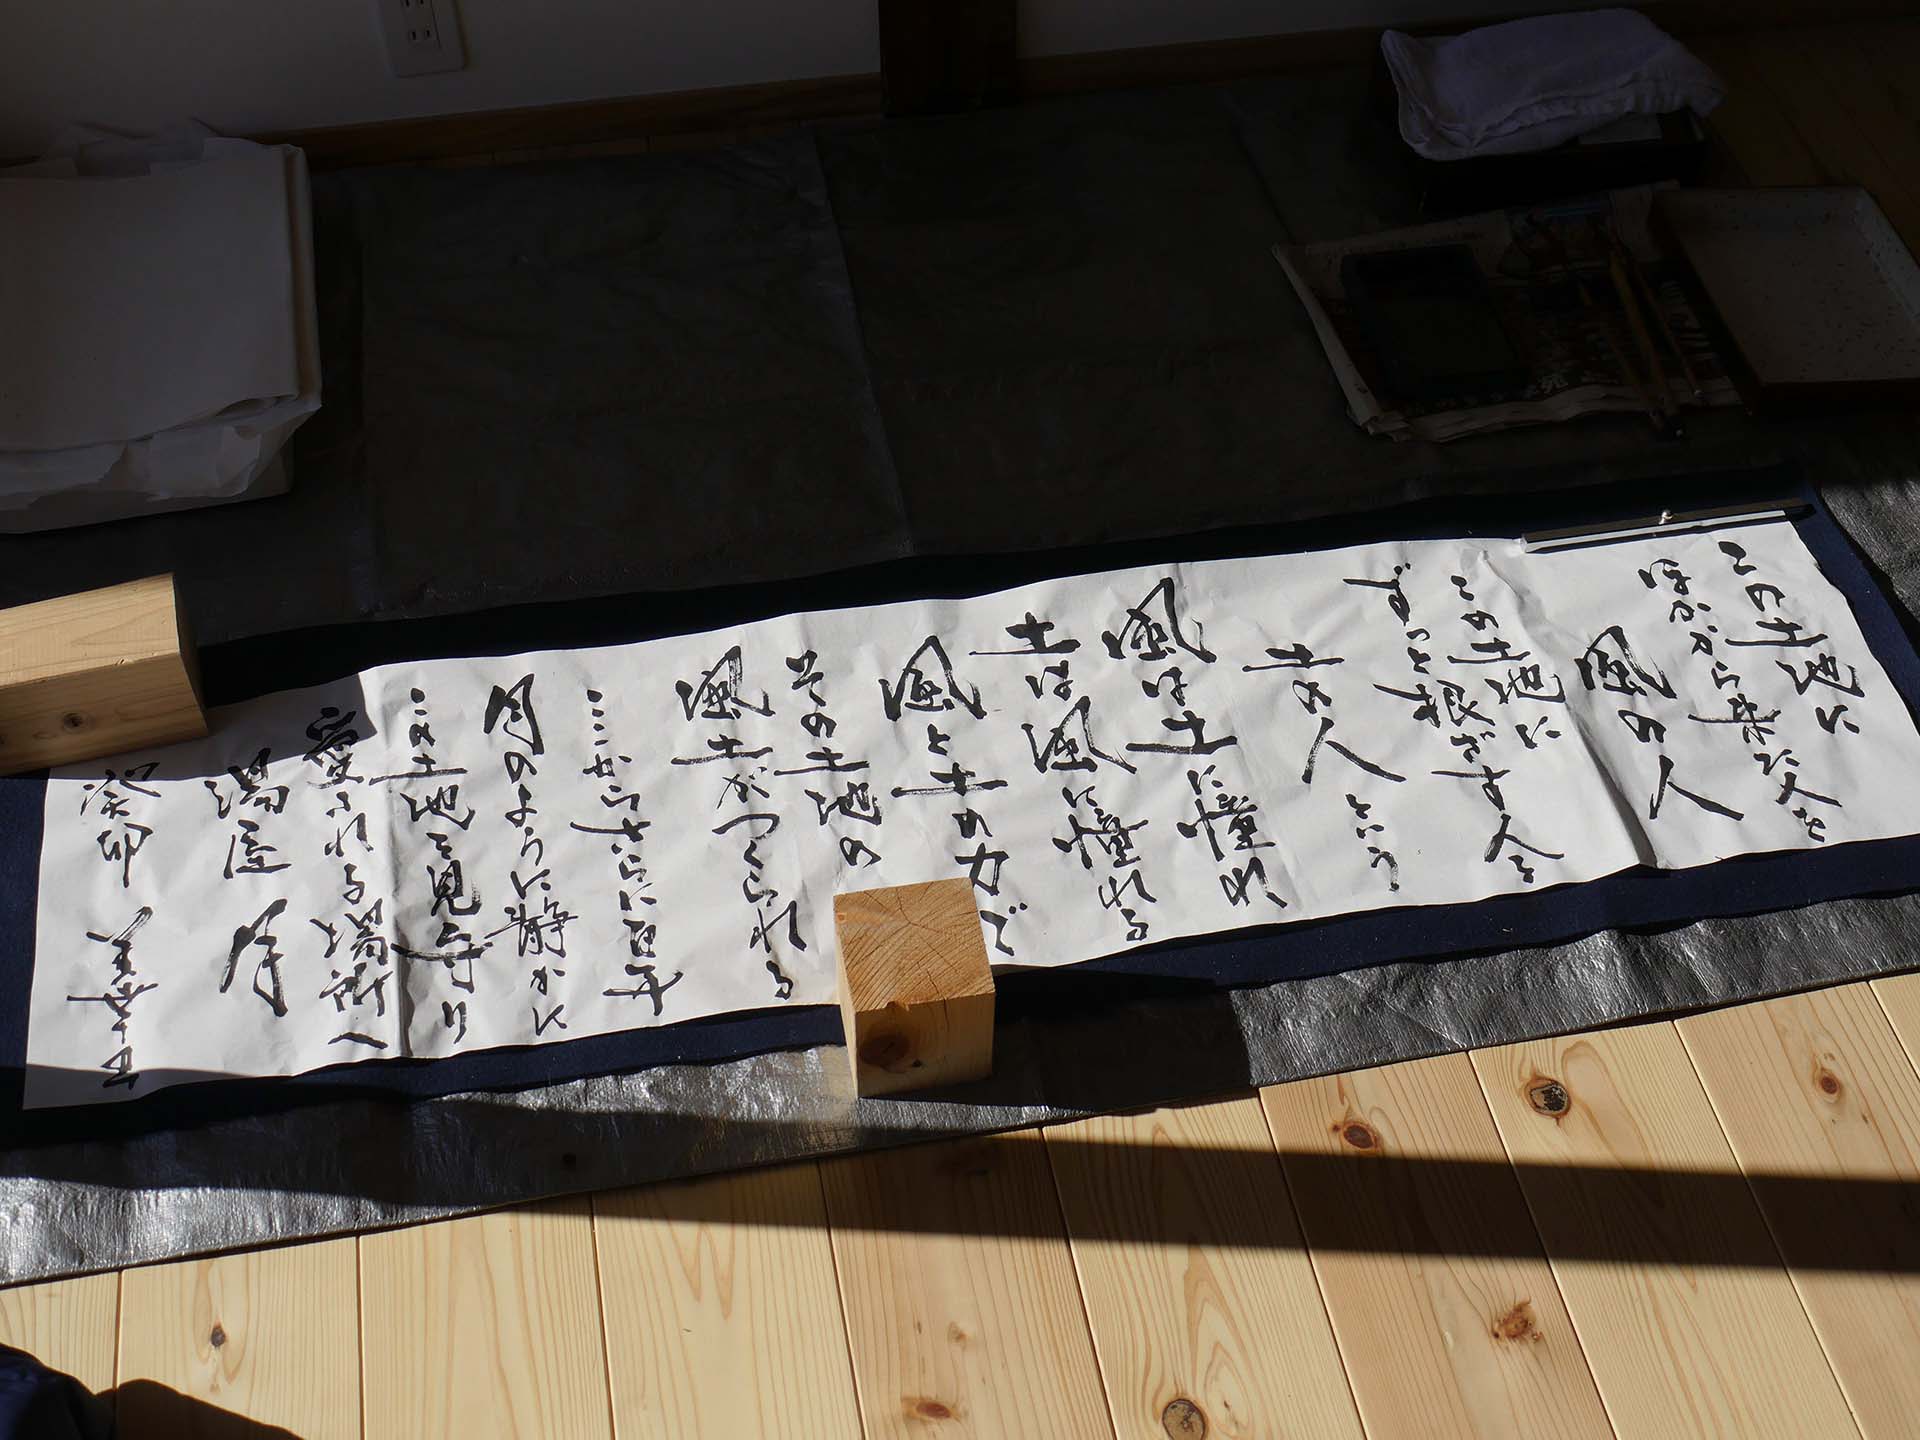 この土地に
ほかから来た人を
風の人
この土地に
ずっと根ざす人を
土の人 という
風は土に憧れ
土は風に憧れる
風と土の力で
その土地の
風土がつくられる
ここからさらに百年
月のように静かに
この土地を見守り
愛される場所へ
湯屋 月
癸卯